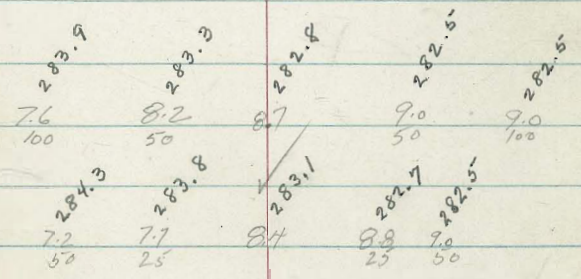 283.9 283.3 282.8 282.5 282.5
7.6 8.2 8.7 9.0 9.0
100 50 50 100
284.3 283.8 283.1 282.7 282.5
7.2 7.7 8.4 8.8 9.0
50 25 25 50